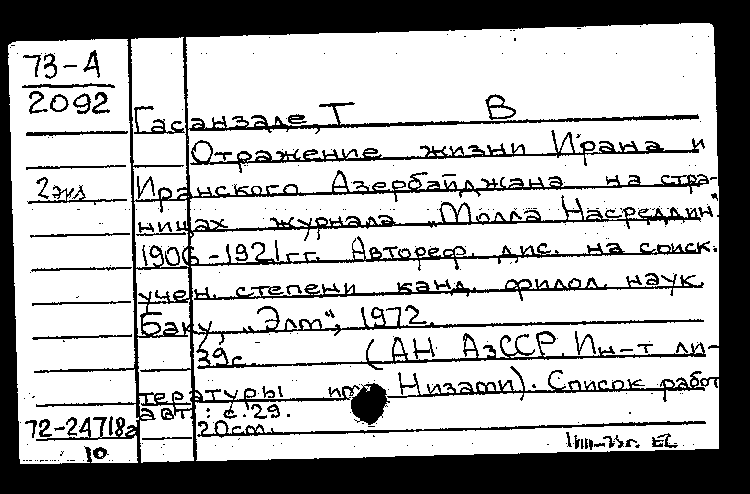 73-А
2092
Гасанзаде, Т В
Отражение жизни Ирана и
2 экз. Иранского Азербайджана на стра-
ницах журнала „Молла Насреддин".
1906-1921гг. Автореф. дис. на соиск.
учен. степени канд. филол. наук.
Баку, „Элм", 1972.
39с. (АН АзССР. Ин-т ли-
тературы им. Низами). Список работ
авт.: с. 29.
72-24718а 20см.
10